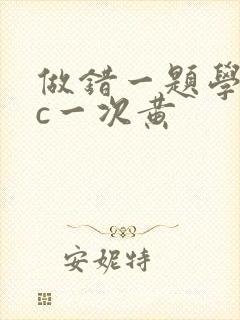 做錯一題學
c一次黃
安妮特